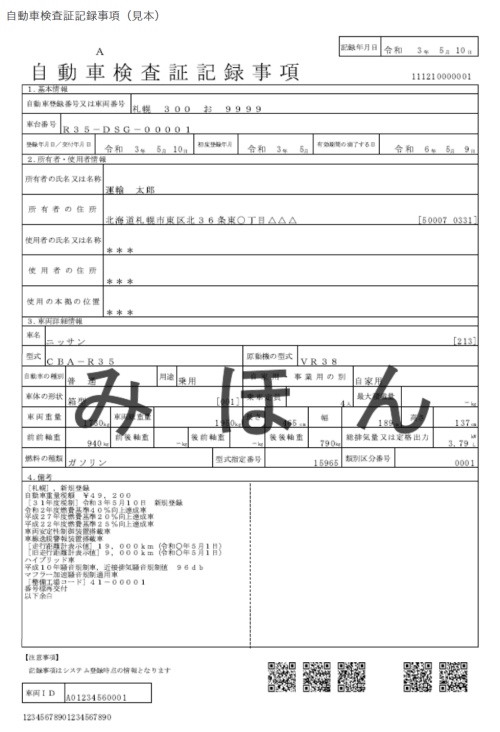 自動車検査証記録事項（見本）
記録年月日 令和 3年 5月 10日
A
自動車検査証記録事項
111210000001
1.基本情報
自動車登録番号又は車両番号 札幌 300 お 9999
車台番号 R35-DSG-00001
登録年月日／交付年月日 令和 3年 5月 10日 初度登録年月 令和 3年 5月 有効期間の満了する日 令和 6年 5月 9日
2.所有者・使用者情報
所有者の氏名又は名称 運輸 太郎
所有者の住所 北海道札幌市東区北36条東○丁目△△△ [50007 0331]
使用者の氏名又は名称 ***
使用者の住所 ***
使用の本拠の位置 ***
3.車両詳細情報
車名 ニッサン [213]
型式 CBA-R35 原動機の型式 VR38
自動車の種別 普通 用途 乗用 自家用・事業用の別 自家用
車体の形状 箱型 [001] 乗車定員 4人 最大積載量 -kg
みほん
車両重量 kg 車両総重量 kg 長さ cm 幅 189cm 高さ 137cm
前前軸重 940kg 前後軸重 -kg 後前軸重 -kg 後後軸重 790kg 総排気量又は定格出力 3.79 L
燃料の種類 ガソリン 型式指定番号 15965 類別区分番号 0001
4.備考
[札幌]，新規登録
自動車重量税額 ￥49，200
[31年度税制]令和3年5月10日 新規登録
令和2年度燃費基準40％向上達成車
平成27年度燃費基準20％向上達成車
平成22年度燃費基準25％向上達成車
車両安定性制御装置搭載車
車線逸脱警報装置搭載車
[走行距離計表示値]19，000km（令和○年5月1日）
[旧走行距離計表示値]9，000km（令和○年5月1日）
ハイブリッド車
平成10年騒音規制車，近接排気騒音規制値 96db
マフラー加速騒音規制適用車
[整備工場コード]41-00001
番号標再交付
以下余白
【注意事項】
記録事項はシステム登録時点の情報となります
車両ID A01234560001
12345678901234567890